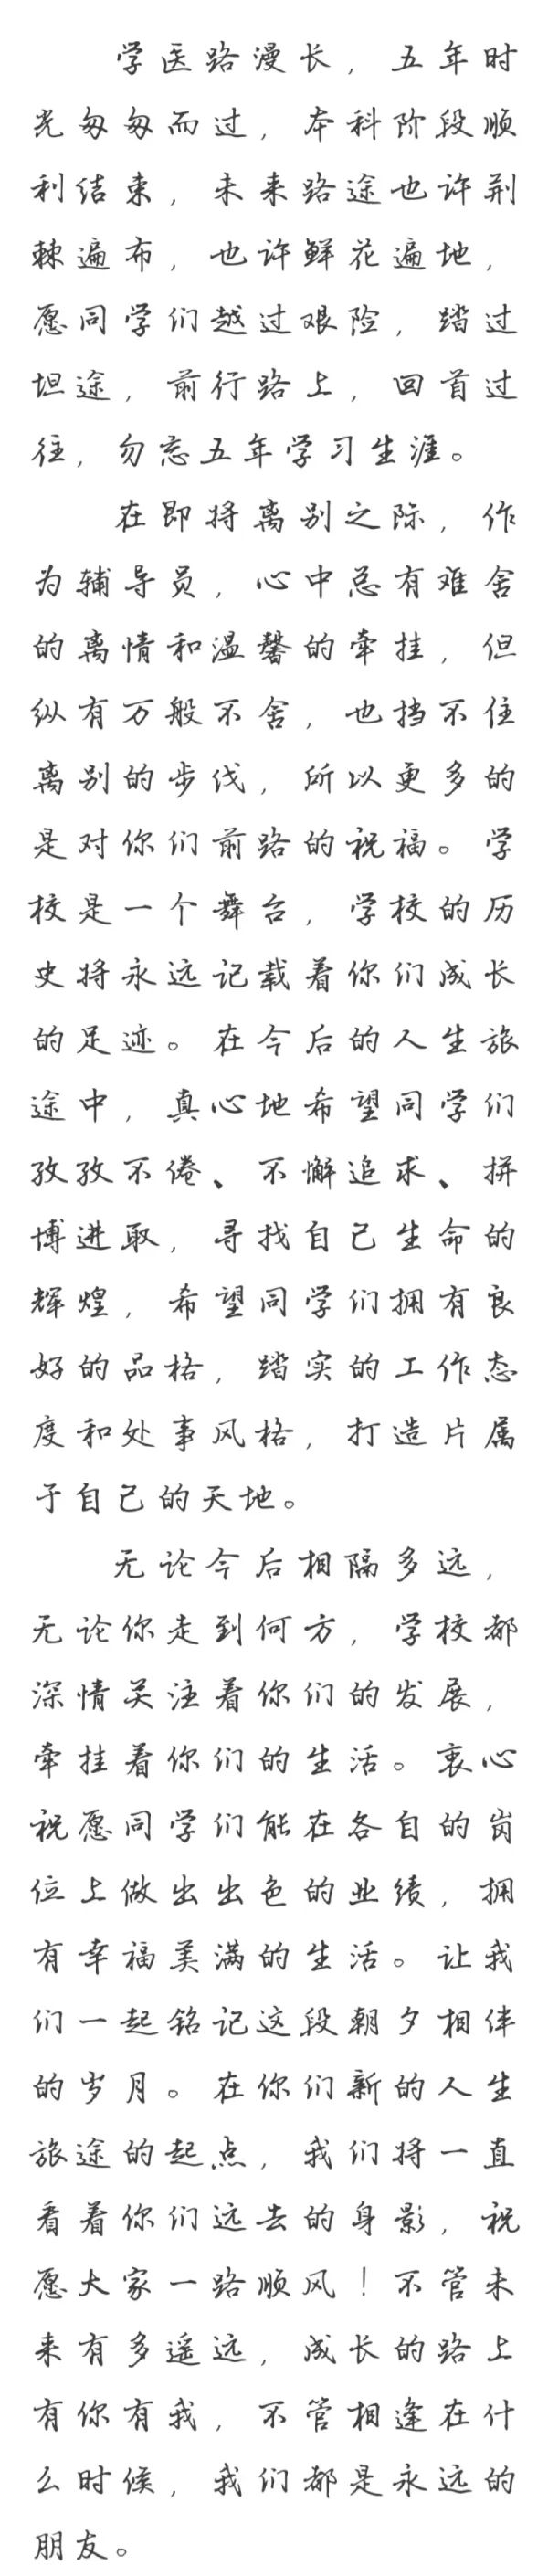 学医路漫长，五年时
光匆匆而过，本科阶段顺
利结束，未来路途也许荆
棘遍布，也许鲜花遍地，
愿同学们越过艰险，踏过
坦途，前行路上，回首过
往，勿忘五年学习生涯。
在即将离别之际，作
为辅导员，心中总有难舍
的离情和温馨的牵挂，但
纵有万般不舍，也挡不住
离别的步伐，所以更多的
是对你们前路的祝福。学
校是一个舞台，学校的历
史将永远记载着你们成长
的足迹。在今后的人生旅
途中，真心地希望同学们
孜孜不倦、不懈追求、拼
博进取，寻找自己生命的
辉煌，希望同学们拥有良
好的品格，踏实的工作态
度和处事风格，打造片属
于自己的天地。
无论今后相隔多远，
无论你走到何方，学校都
深情关注着你们的发展，
牵挂着你们的生活。衷心
祝愿同学们能在各自的岗
位上做出出色的业绩，拥
有幸福美满的生活。让我
们一起铭记这段朝夕相伴
的岁月。在你们新的人生
旅途的起点，我们将一直
看着你们远去的身影，祝
愿大家一路顺风！不管未
来有多遥远，成长的路上
有你有我，不管相逢在什
么时候，我们都是永远的
朋友。